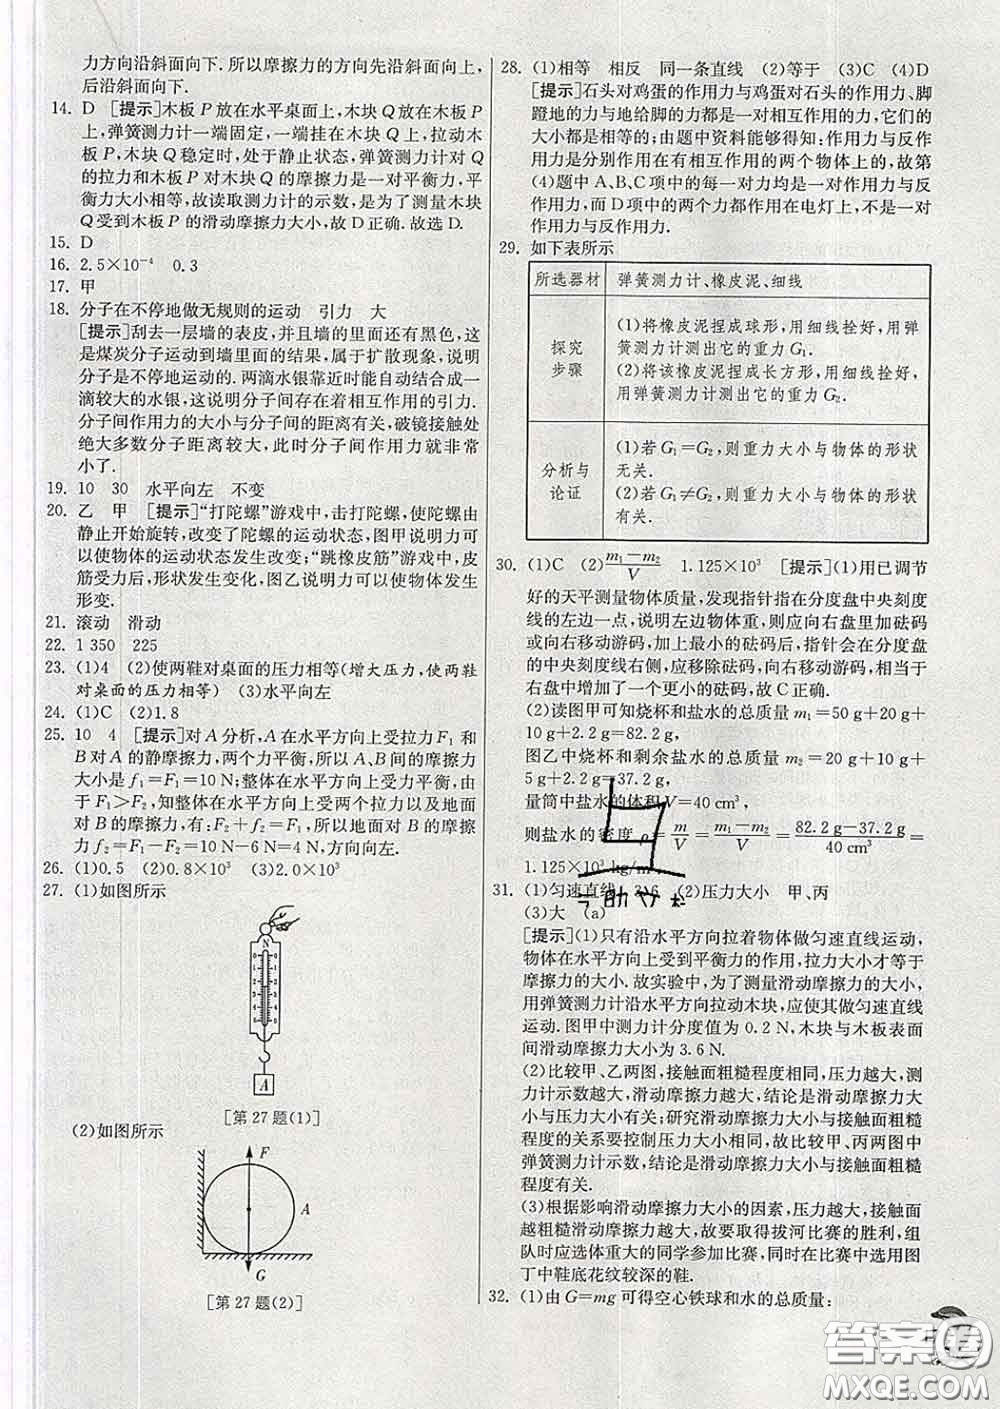 力方向沿斜面向下.所以摩擦力的方向先沿斜面向上,
后沿斜面向下.
14. D [提示]木板 P 放在水平桌面上,木块 Q 放在木板 P
上,弹簧测力计一端固定,一端挂在木块 Q 上,拉动木
板 P,木块 Q 稳定时,处于静止状态,弹簧测力计对 Q
的拉力和木板 P 对木块 Q 的摩擦力是一对平衡力,平
衡力大小相等,故读取测力计的示数,是为了测量木块
Q 受到木板 P 的滑动摩擦力大小,故 D 正确.故选 D.
15. D
16. 2.5×10⁻⁴ 0.3
17. 甲
18. 分子在不停地做无规则的运动 引力 大
[提示]刮去一层墙的表皮,并且墙的里面还有黑色,这
是煤炭分子运动到墙里面的结果,属于扩散现象,说明
分子是不停地运动的.两滴水银靠近时能自动结合成一
滴较大的水银,这说明分子间存在着相互作用的引力.
分子间作用力的大小与分子间的距离有关,破镜接触处
绝大多数分子距离较大,此时分子间作用力就非常
小了.
19. 10 30 水平向左 不变
20. 乙 甲 [提示]“打陀螺”游戏中,击打陀螺,使陀螺由
静止开始旋转,改变了陀螺的运动状态,图甲说明力可
以使物体的运动状态发生改变;“跳橡皮筋”游戏中,皮
筋受力后,形状发生变化,图乙说明力可以使物体发生
形变.
21. 滚动 滑动
22. 1 350 225
23. (1)4 (2)使两鞋对桌面的压力相等(增大压力,使两鞋
对桌面的压力相等) (3)水平向左
24. (1)C (2)1.8
25. 10 4 [提示]对 A 分析,A 在水平方向上受拉力F₁ 和
B 对 A 的静摩擦力,两个力平衡,所以 A、B 间的摩擦力
大小是 f₁=F₁=10 N;整体在水平方向上受力平衡,由
于 F₁>F₂,知整体在水平方向上受两个拉力以及地面
对 B 的摩擦力,有:F₂+f₂=F₁,所以地面对 B 的摩擦
力 f₂=F₁-F₂=10 N-6 N=4 N,方向向左.
26. (1)0.5 (2)0.8×10³ (3)2.0×10³
27. (1)如图所示
N
0 0
1 1
2 2
3 3
4 4
5 5
A
[第 27 题(1)]
(2)如图所示
F
A
G
[第 27 题(2)]
28. (1)相等 相反 同一条直线 (2)等于 (3)C (4)D
[提示]石头对鸡蛋的作用力与鸡蛋对石头的作用力、脚
蹬地的力与地给脚的力都是一对相互作用的力,它们的
大小都是相等的;由题中资料能够得知:作用力与反作
用力是分别作用在有相互作用的两个物体上的,故第
(4)题中 A、B、C 项中的每一对力均是作用力与反作
用力,而 D 项中的两个力都作用在电灯上,不是一对
作用力与反作用力.
29. 如下表所示
所选器材 弹簧测力计、橡皮泥、细线
探究
步骤
(1)将橡皮泥捏成球形,用细线拴好,用弹
簧测力计测出它的重力 G₁.
(2)将该橡皮泥捏成长方形,用细线拴好,
用弹簧测力计测出它的重力 G₂.
分析与
论证
(1)若 G₁=G₂,则重力大小与物体的形状
无关.
(2)若 G₁≠G₂,则重力大小与物体的形状
有关.
30. (1)C (2)(m₁-m₂)/V 1.125×10³ [提示](1)用已调节
好的天平测量物体质量,发现指针指在分度盘中央刻度
线的左边一点,说明左边物体重,则应向右盘里加砝码
或向右移动游码,加上最小的砝码后,指针会在分度盘
的中央刻度线右侧,应移除砝码,向右移动游码,相当于
右盘中增加了一个更小的砝码,故 C 正确.
(2)读图甲可知烧杯和盐水的总质量 m₁=50 g+20 g+
10 g+2.2 g=82.2 g,
图乙中烧杯和剩余盐水的总质量 m₂=20 g+10 g+
5 g+2.2 g=37.2 g,
量筒中盐水的体积 V=40 cm³,
则盐水的密度 ρ=m/V=(m₁-m₂)/V=(82.2 g-37.2 g)/40 cm³=
1.125×10³ kg/m³.
31. (1)匀速直线 3.6 (2)压力大小 甲、丙
(3)大 (a)
[提示](1)只有沿水平方向拉着物体做匀速直线运动,
物体在水平方向上受到平衡力的作用,拉力大小才等于
摩擦力的大小.故实验中,为了测量滑动摩擦力的大小,
用弹簧测力计沿水平方向拉动木块,应使其做匀速直线
运动.图甲中测力计分度值为 0.2 N,木块与木板表面
间滑动摩擦力大小为 3.6 N.
(2)比较甲、乙两图,接触面粗糙程度相同,压力越大,测
力计示数越大,滑动摩擦力越大,结论是滑动摩擦力大
小与压力大小有关;研究滑动摩擦力大小与接触面粗糙
程度的关系要控制压力大小相同,故比较甲、丙两图中
弹簧测力计示数,结论是滑动摩擦力大小与接触面粗糙
程度有关.
(3)根据影响滑动摩擦力大小的因素,压力越大,接触面
越粗糙滑动摩擦力越大,故要取得拔河比赛的胜利,组
队时应选体重大的同学参加比赛,同时在比赛中选用图
丁中鞋底花纹较深的鞋.
32. (1)由 G=mg 可得空心铁球和水的总质量:
答案圈
MXQE.COM